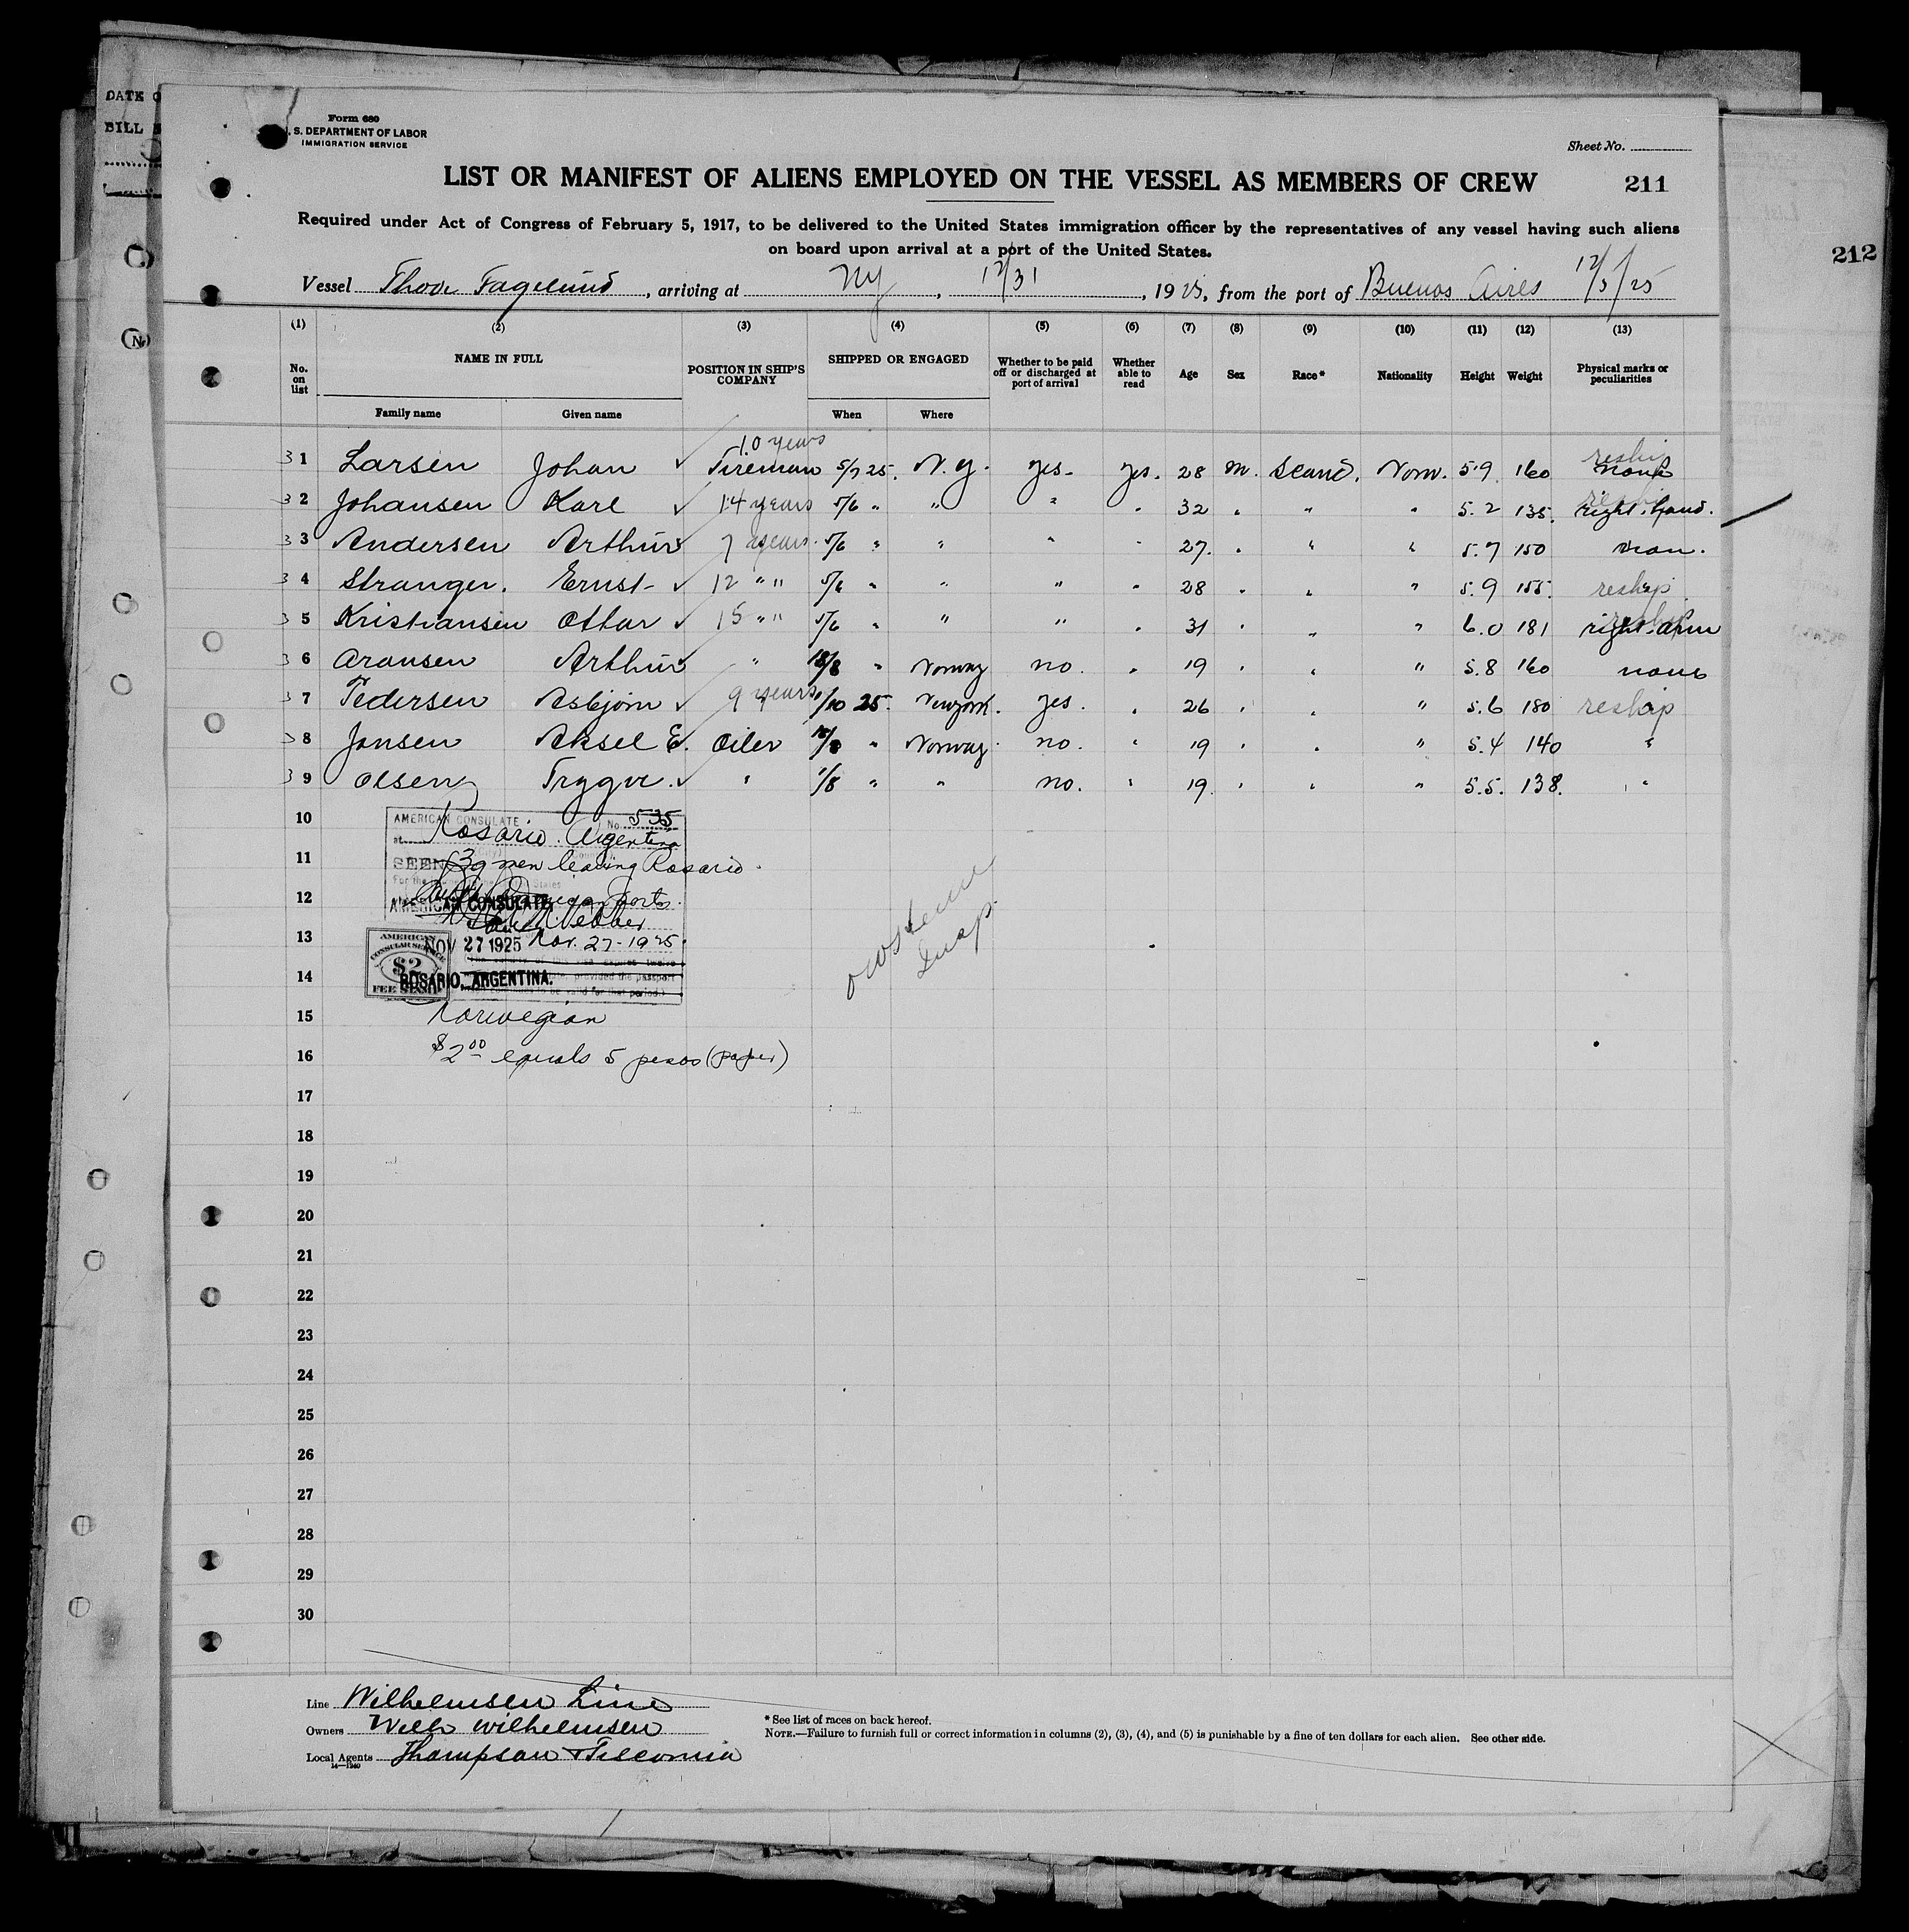 DATE
BILL
Form 680
S. DEPARTMENT OF LABOR
IMMIGRATION SERVICE
Sheet No.
LIST OR MANIFEST OF ALIENS EMPLOYED ON THE VESSEL AS MEMBERS OF CREW 211
Required under Act of Congress of February 5, 1917, to be delivered to the United States immigration officer by the representatives of any vessel having such aliens
on board upon arrival at a port of the United States.
212
Vessel Thode Fagelund, arriving at NY, 12/31, 1925, from the port of Buenos Aires 12/5/25
(1) (2) (3) (4) (5) (6) (7) (8) (9) (10) (11) (12) (13)
No. on list NAME IN FULL POSITION IN SHIP'S COMPANY SHIPPED OR ENGAGED Whether to be paid off or discharged at port of arrival Whether able to read Age Sex Race* Nationality Height Weight Physical marks or peculiarities
Family name Given name When Where
10 years reship
3 1 Larsen Johan ✓ Fireman 5/7 25. N.Y. yes- yes. 28 m. Scand. Norw. 5.9 160 none
3 2 Johansen Karl ✓ 14 years 5/6 " " " " 32 " " " 5.2 135. right hand.
3 3 Andersen Arthur ✓ 7 years 5/6 " " " " 27. " " " 5.7 150
3 4 Stranger. Ernst- ✓ 12 " " 5/6 " " " " 28 " " " 5.9 155. reship
3 5 Kristiansen Ottar ✓ 15 " " 5/6 " " " " 31 " " " 6.0 181 right arm
3 6 Aronsen Arthur ✓ " 18/8 " Norway no. " 19 " " " 5.8 160 none
3 7 Pedersen Asbjorn ✓ 9 years 1/10 25. New York. yes. " 26 " " " 5.6 180 reship
3 8 Jansen Aksel E. Oiler 18/8 " Norway. no. " 19 " " " 5.4 140 "
3 9 Olsen Trygve. ✓ " 1/8 " " no. " 19. " " " 5.5. 138. "
10
AMERICAN CONSULATE No. 535
at Rosario. Argentina
11
SEEN 39 men leaving Rosario.
12
AMERICAN CONSULATE,
13
NOV 27 1925 Nov. 27-1925.
AMERICAN CONSULAR SERVICE $2 FEE STAMP
14
ROSARIO, ARGENTINA.
Insp.
15 Norwegian
16 $2.00 equals 5 pesos (paper)
17
18
19
20
21
22
23
24
25
26
27
28
29
30
Line Wilhelmsen Line
Owners Wilh Wilhelmsen
Local Agents Thompson Tiscornia
14—1240
* See list of races on back hereof.
NOTE.—Failure to furnish full or correct information in columns (2), (3), (4), and (5) is punishable by a fine of ten dollars for each alien. See other side.